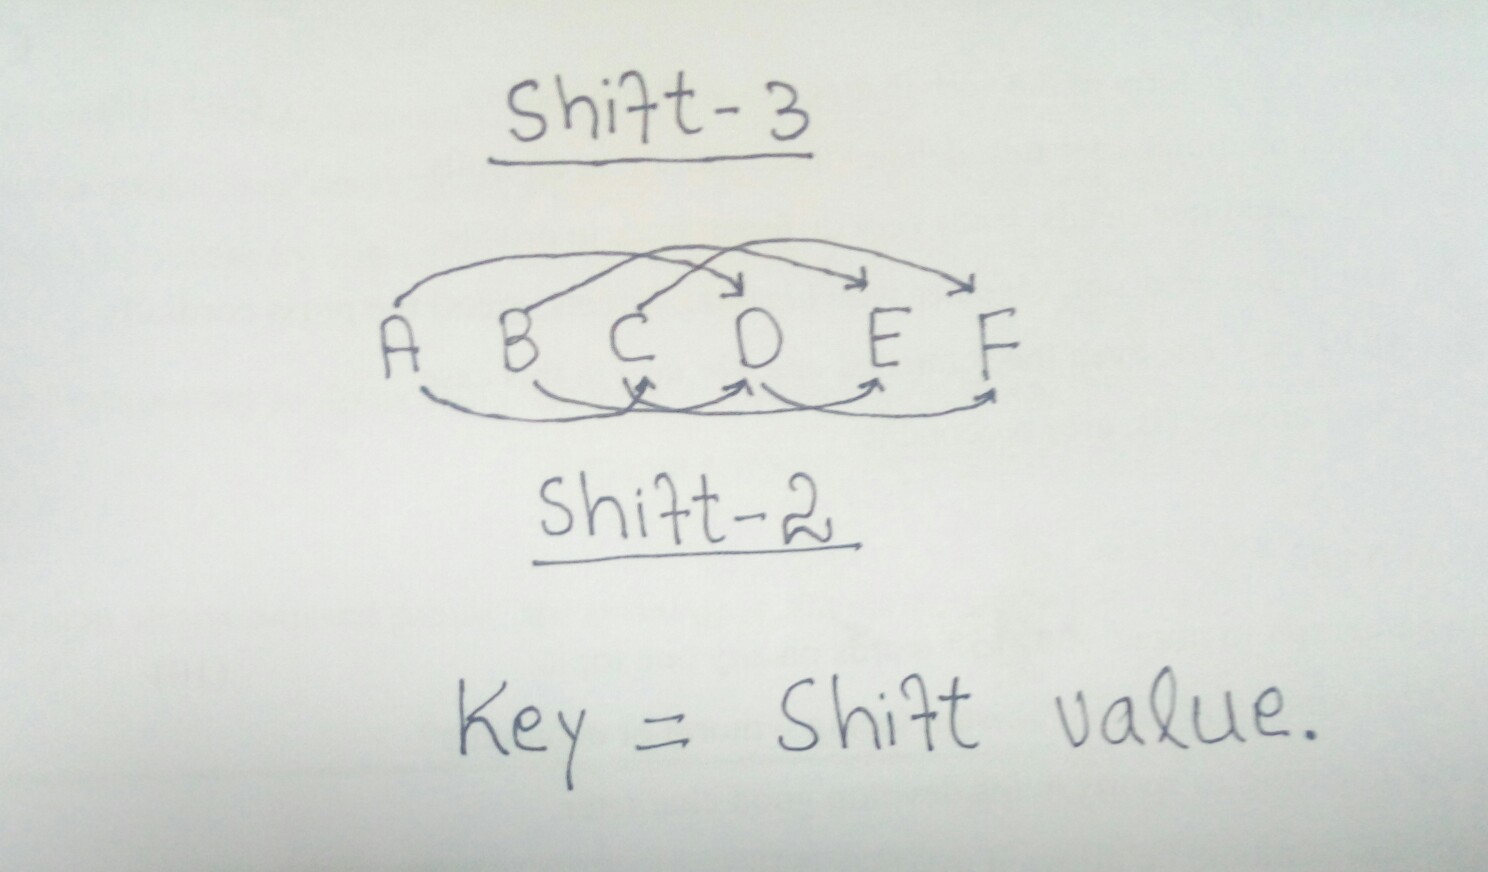 Shift-3
A B C D E F
Shift-2
Key = Shift value.